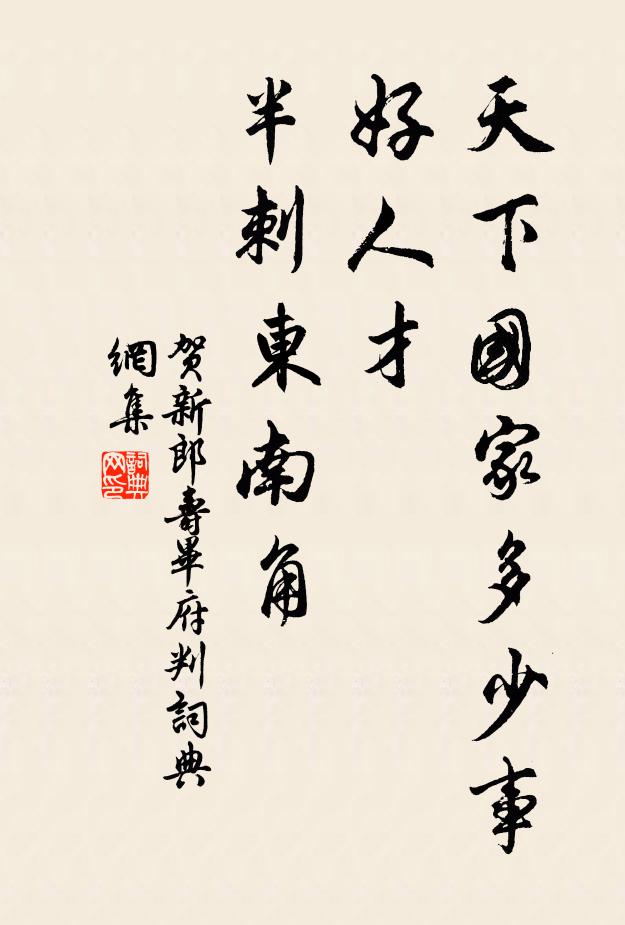 天下國家多少事
好人才
半刺東南角
賀新郎壽畢府判詞典
網集
詞典
网印